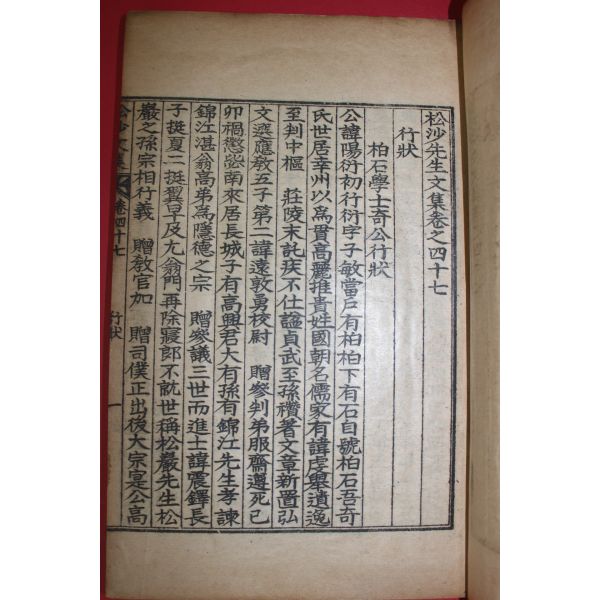 松沙先生文集卷之四十七
行狀
柏石學士奇公行狀
公諱陽衍初行衍字子敏當戶有柏柏下有石自號柏石吾奇
氏世居幸州以爲貫高麗推貴姓國朝名儒家有諱虔擧遺逸
至判中樞 莊陵末託疾不仕謚貞武至孫禶著文章新置弘
文選應敎五子第二諱遠敦勇校尉 贈參判弟服齋遵死己
卯禍懲毖南來居長城子有高興君大有孫有錦江先生孝諫
錦江湛翁高弟爲隱德之宗 贈參議三世而進士諱震鐸長
子挺夏二挺翼早及尤翁門再除寢郞不就世稱松巖先生松
巖之孫宗相行義 贈敎官加 贈司僕正出後大宗寔公高
松沙文集 卷四十七 行狀 一